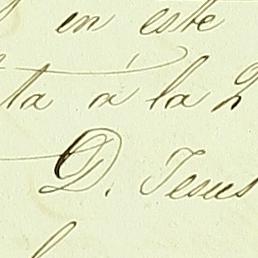 en este
ta á la 2
D. Jesus